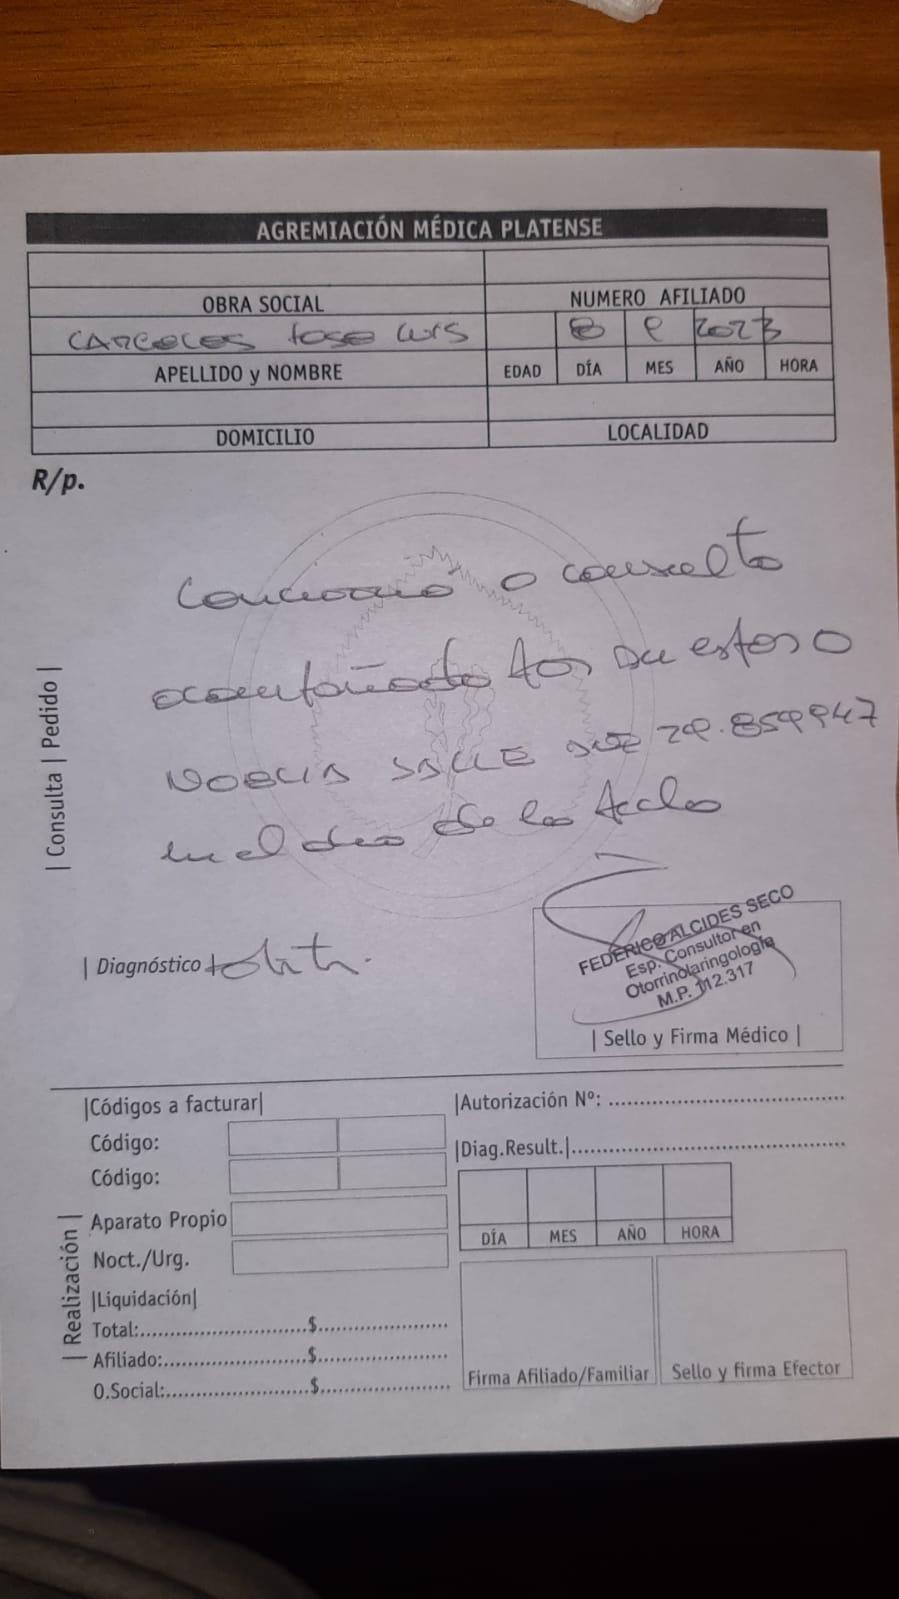 AGREMIACIÓN MÉDICA PLATENSE
OBRA SOCIAL
NUMERO AFILIADO
CARCELES JOSE LUIS
8 2023
APELLIDO y NOMBRE
EDAD DÍA MES AÑO HORA
DOMICILIO
LOCALIDAD
R/p.
Concurrió a consulta
acompañado por su esposa
NOELIA DNI 29.859947
en el día de la fecha
| Consulta | Pedido |
| Diagnóstico
FEDERICO ALCIDES SECO
Esp. Consultor en
Otorrinolaringología
M.P. 112.317
| Sello y Firma Médico |
|Códigos a facturar|
Código:
Código:
Aparato Propio
Noct./Urg.
|Liquidación|
Total:..............................$......................
Afiliado:..........................$......................
O.Social:..........................$......................
| Realización |
|Autorización Nº: ........................................
|Diag.Result.|..............................................
DÍA MES AÑO HORA
Firma Afiliado/Familiar
Sello y firma Efector